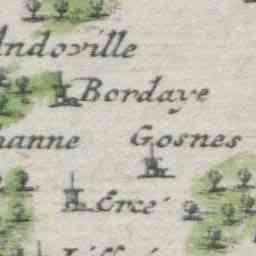 Andoville
Bordaye
hanne Gosnes
Ercé